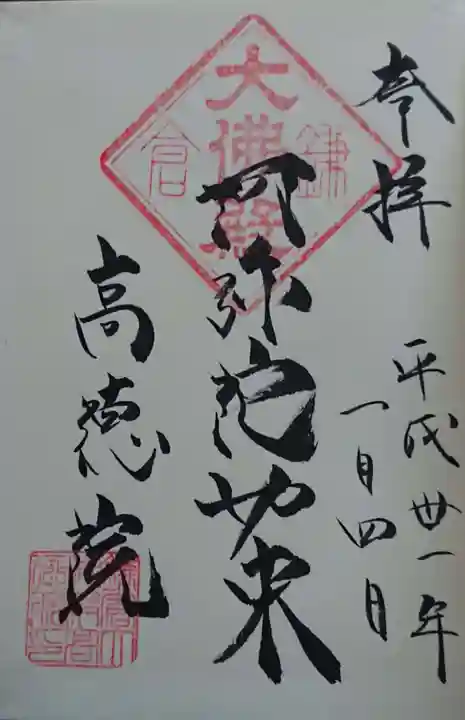 奉拝
平成卅一年
一月四日
大佛殿
鎌倉
阿弥陀如来
高徳院